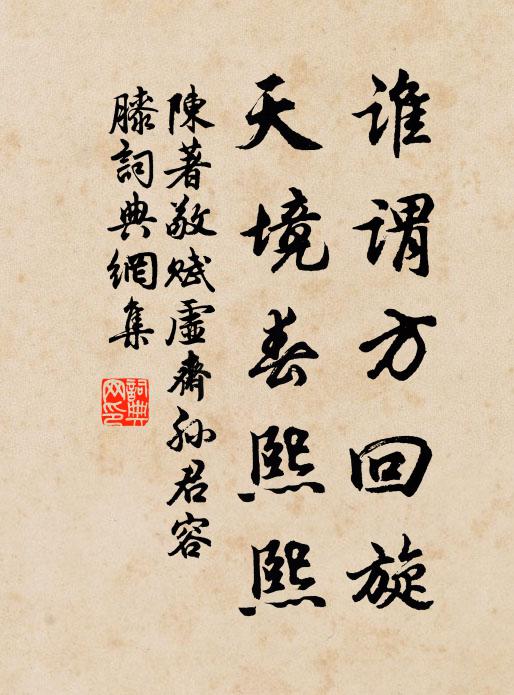 誰謂方回旋
天境春熙熙
陳著敬賦虛齋孫君容
滕詞典網集
詞典網印